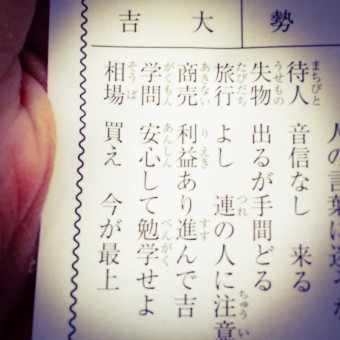 勢
大吉
人の言葉に迷
待人 音信なし 来る
失物 出るが手間どる
旅行 よし 連の人に注意
商売 利益あり進んで吉
学問 安心して勉学せよ
相場 買え 今が最上